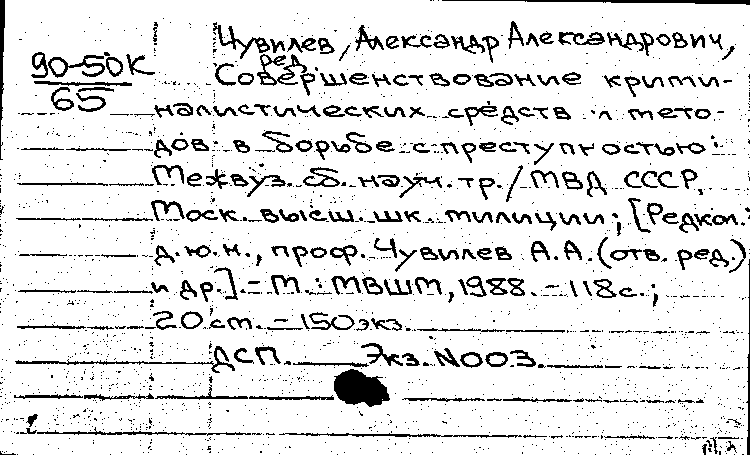 Чувилев, Александр Александрович,
ред.
90-50К
65
Совершенствование крими-
налистических средств и мето-
дов в борьбе с преступностью:
Межвуз. сб. науч. тр. / МВД СССР,
Моск. высш. шк. милиции; [Редкол.:
д.ю.н., проф. Чувилев А.А. (отв. ред.)
и др.]. - М.: МВШМ, 1988. - 118с.;
20 см. - 150 экз.
ДСП. Экз. N003.